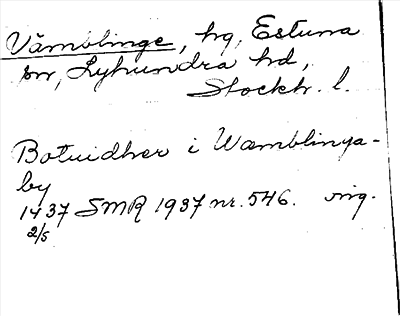 Vämblinge, hg, Estuna
sn, Lyhundra hd,
Stockh. l.
Botuidher i Wæmblinga-
by
1437 SMR 1937 nr. 546. orig.
2/5